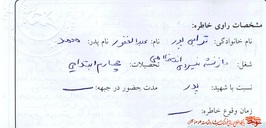 مشخصات راوی خاطره:
نام خانوادگی: ترابی پدر نام: عبدالغفور نام پدر: محمد
شغل: بازنشسته نیروی انتظامی تحصیلات: چهارم ابتدایی
نسبت با شهید: پدر مدت حضور در جبهه: —
زمان وقوع خاطره: —